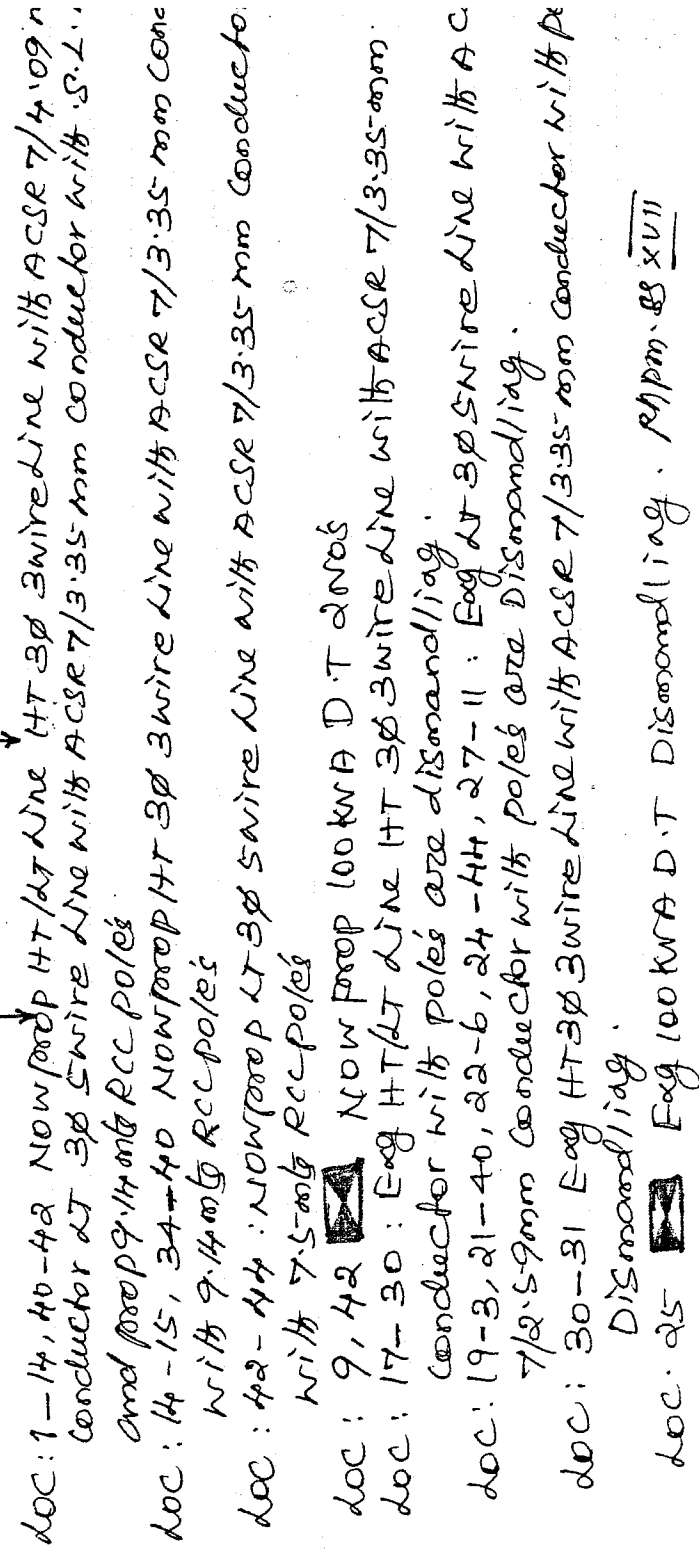 LOC: 1-14, 40-42 Now prop HT/LT Line HT 3Ø 3wire Line with ACSR 7/4.09
conductor LT 3Ø 5wire Line with ACSR 7/3.35 mm conductor with S.L.
and prop 9.14 mts RCC poles
LOC: 14-15, 34-40 Now prop HT 3Ø 3wire Line with ACSR 7/3.35 mm cond
with 9.14 mts RCC poles
LOC: 42-44: Now prop LT 3Ø 5wire Line with ACSR 7/3.35 mm conducto
with 7.5 mts RCC poles
LOC: 9, 42 Now prop 100 KVA D.T 2NOS
LOC: 17-30: Exg HT/LT Line HT 3Ø 3wire Line with ACSR 7/3.35 mm.
conductor with poles are dismandling.
LOC: 19-3, 21-40, 22-6, 24-44, 27-11: Exg LT 3Ø 5wire Line with AC
7/2.59mm conductor with poles are Dismandling.
LOC: 30-31 Exg HT 3Ø 3wire Line with ACSR 7/3.35 mm conductor with po
Dismandling.
LOC. 25 Exg 100 KVA D.T Dismandling. XVII